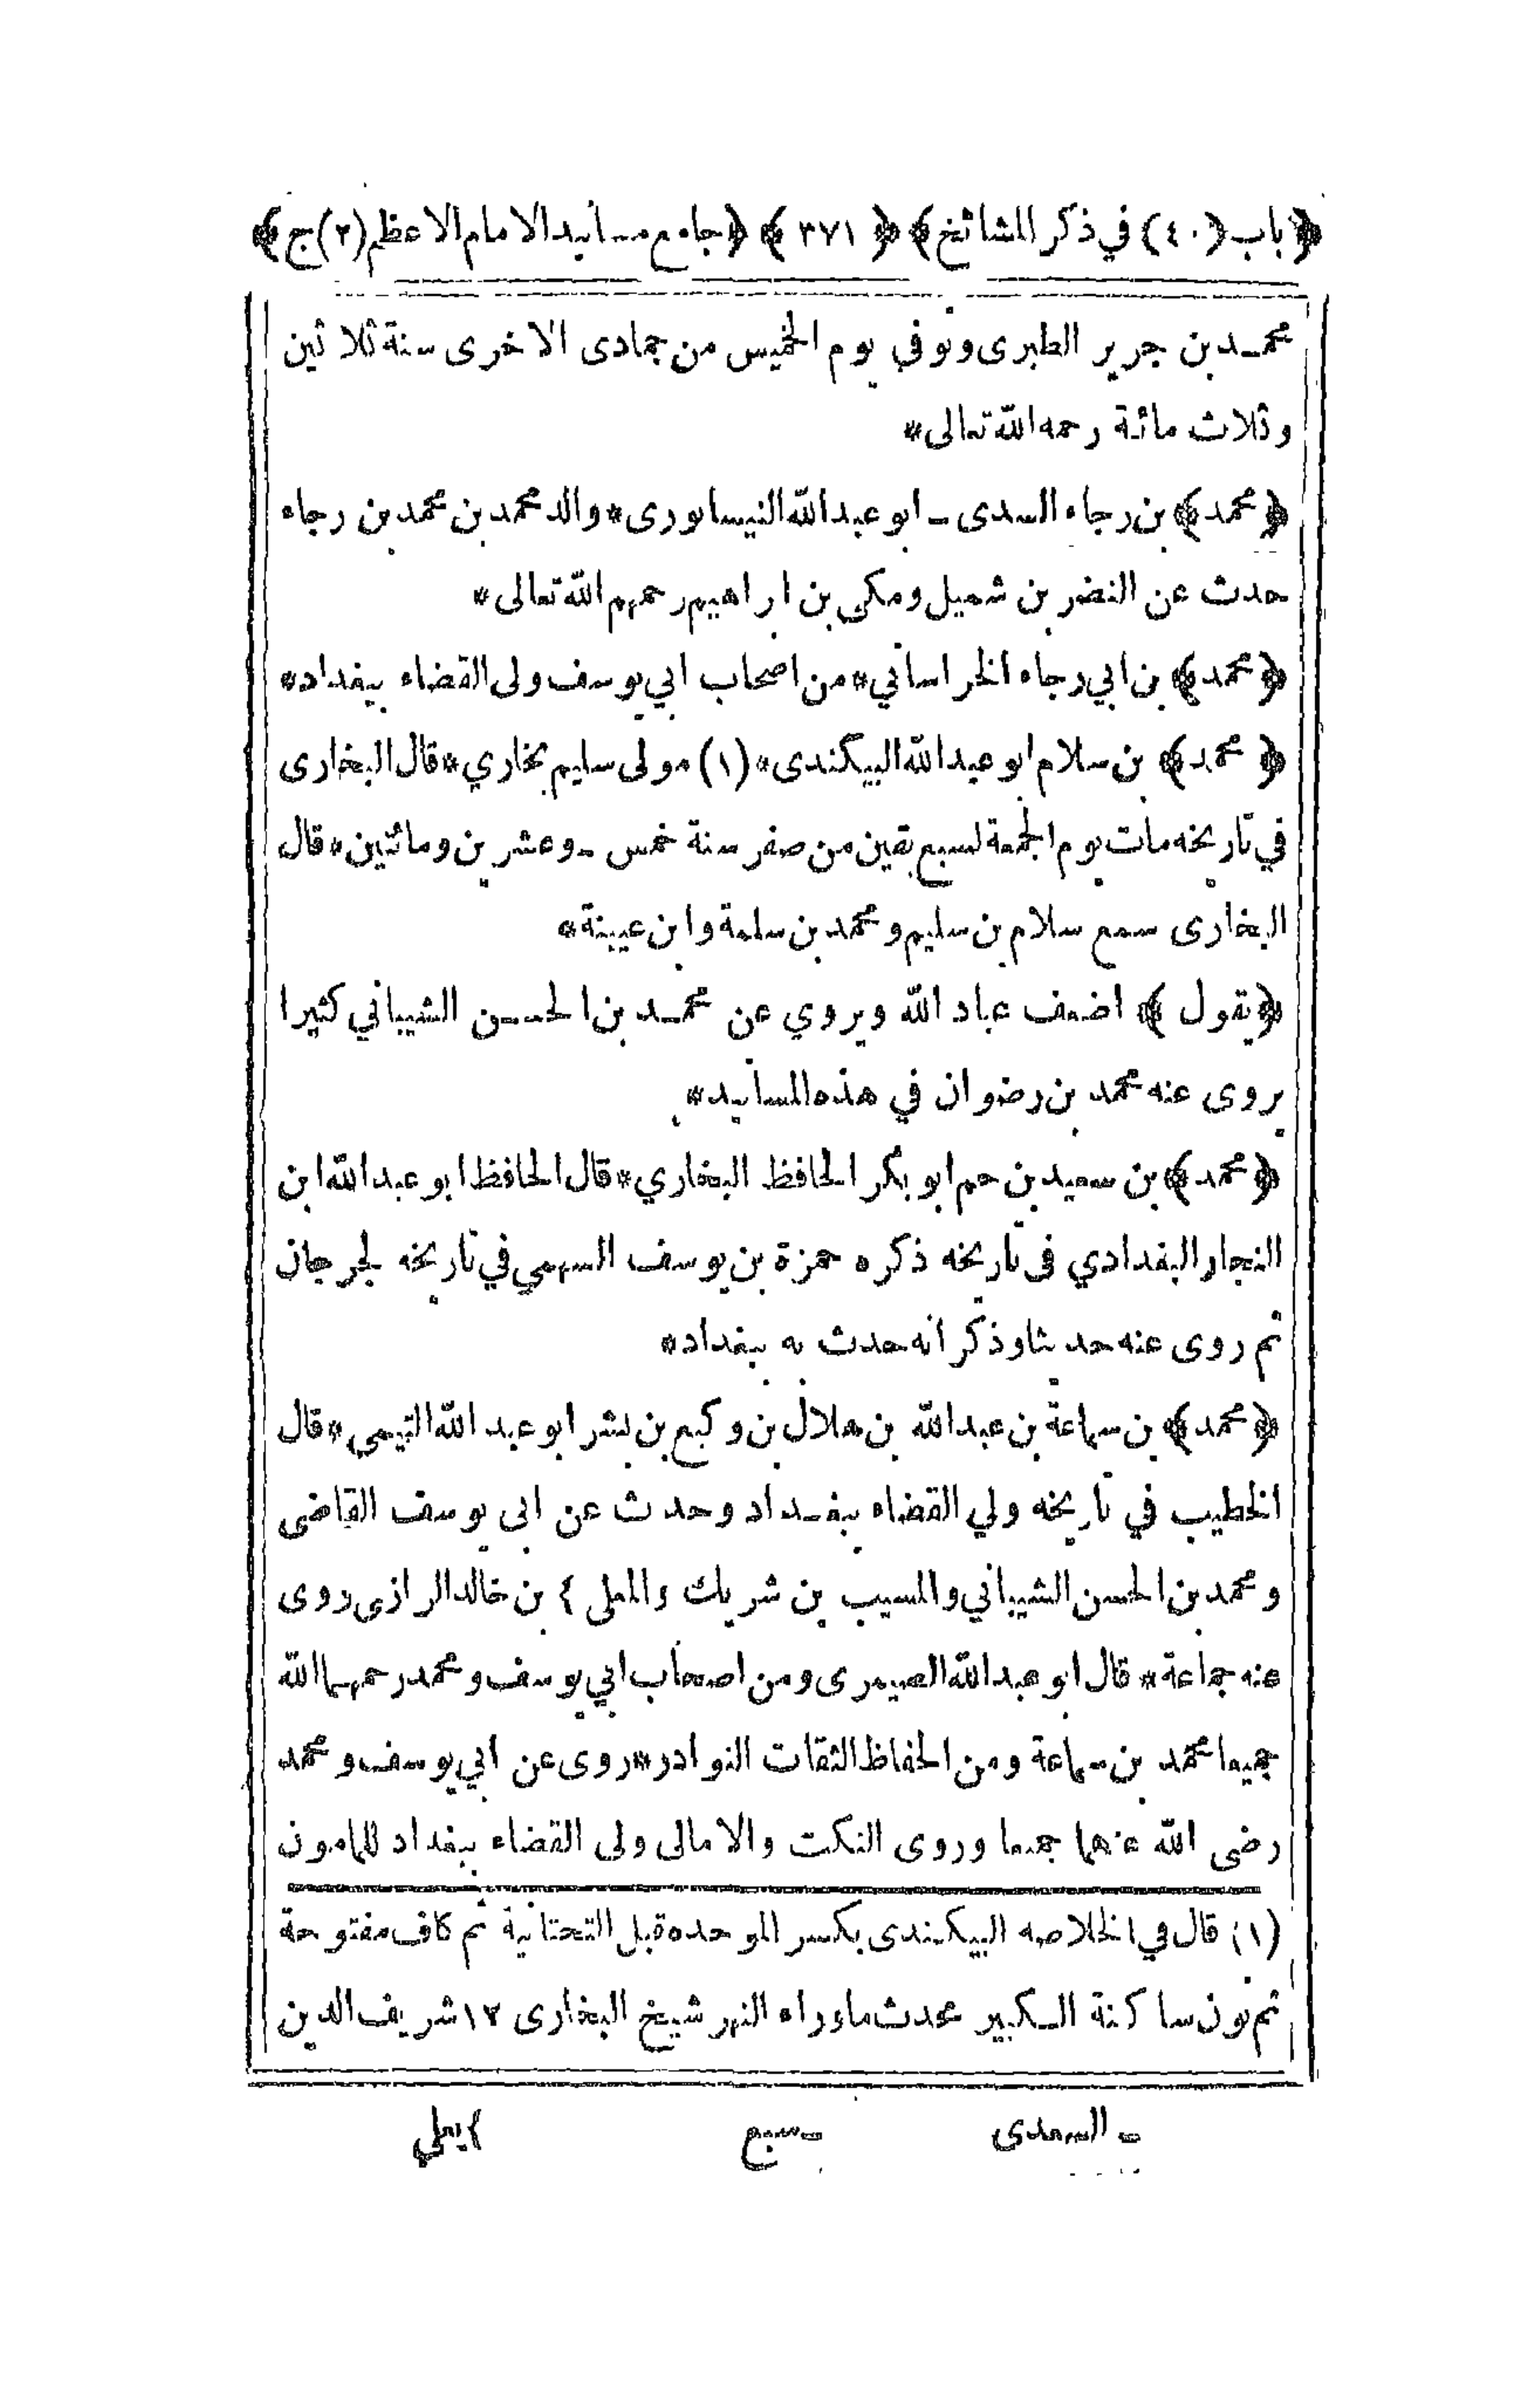 ﴿باب (٤٠) في ذكر المشائخ﴾ ﴿٣٧١﴾ ﴿جامع مسانيد الامام الاعظم (٢) ج﴾
محمد بن جرير الطبرى وتوفي يوم الخميس من جمادى الاخرى سنة ثلاثين
وثلاث مائة رحمه الله تعالى*
﴿محمد﴾ بن رجاء السدى ـ ابو عبد الله النيسابورى* والد محمد بن محمد بن رجاء
حدث عن النضر بن شميل ومكى بن ابراهيم رحمهم الله تعالى*
﴿محمد﴾ بن ابي رجاء الخراساني* من اصحاب ابي يوسف ولى القضاء ببغداد*
﴿محمد﴾ بن سلام ابو عبد الله البيكندى* (١) مولى سليم بخاري* قال البخارى
في تاريخه مات يوم الجمعة لسبع بقين من صفر سنة خمس ـ وعشرين ومائتين* قال
البخارى سمع سلام بن سليم ومحمد بن سلمة وابن عيينة*
﴿يقول﴾ اضعف عباد الله ويروي عن محمد بن الحسن الشيباني كثيرا
يروى عنه محمد بن رضوان في هذه المسانيد*
﴿محمد﴾ بن سعيد بن حم ابو بكر الحافظ البخاري* قال الحافظ ابو عبد الله ابن
النجار البغدادي فى تاريخه ذكره حمزة بن يوسف السهمي في تاريخه لجرجان
ثم روى عنه حديثا وذكر انه حدث به ببغداد*
﴿محمد﴾ بن سماعة بن عبد الله بن هلال بن وكيع بن بشر ابو عبد الله التيمي* قال
الخطيب في تاريخه ولي القضاء ببغداد وحدث عن ابى يوسف القاضى
ومحمد بن الحسن الشيباني والمسيب بن شريك والمعلى ٤ بن خالد الرازى روى
عنه جماعة* قال ابو عبد الله الصيمرى ومن اصحاب ابي يوسف ومحمد رحمهما الله
جميعا محمد بن سماعة ومن الحفاظ الثقات النوادر* روى عن ابي يوسف ومحمد
رضى الله عنهما جميعا وروى النكت والامالى ولى القضاء ببغداد للمامون
(١) قال في الخلاصه البيكندى بكسر الموحده قبل التحتانية ثم كاف مفتوحة
ثم نون ساكنة الكبير محدث ماء راء النهر شيخ البخارى ١٢ شريف الدين
ـ السعدى ـ سبع ٤ يعلي